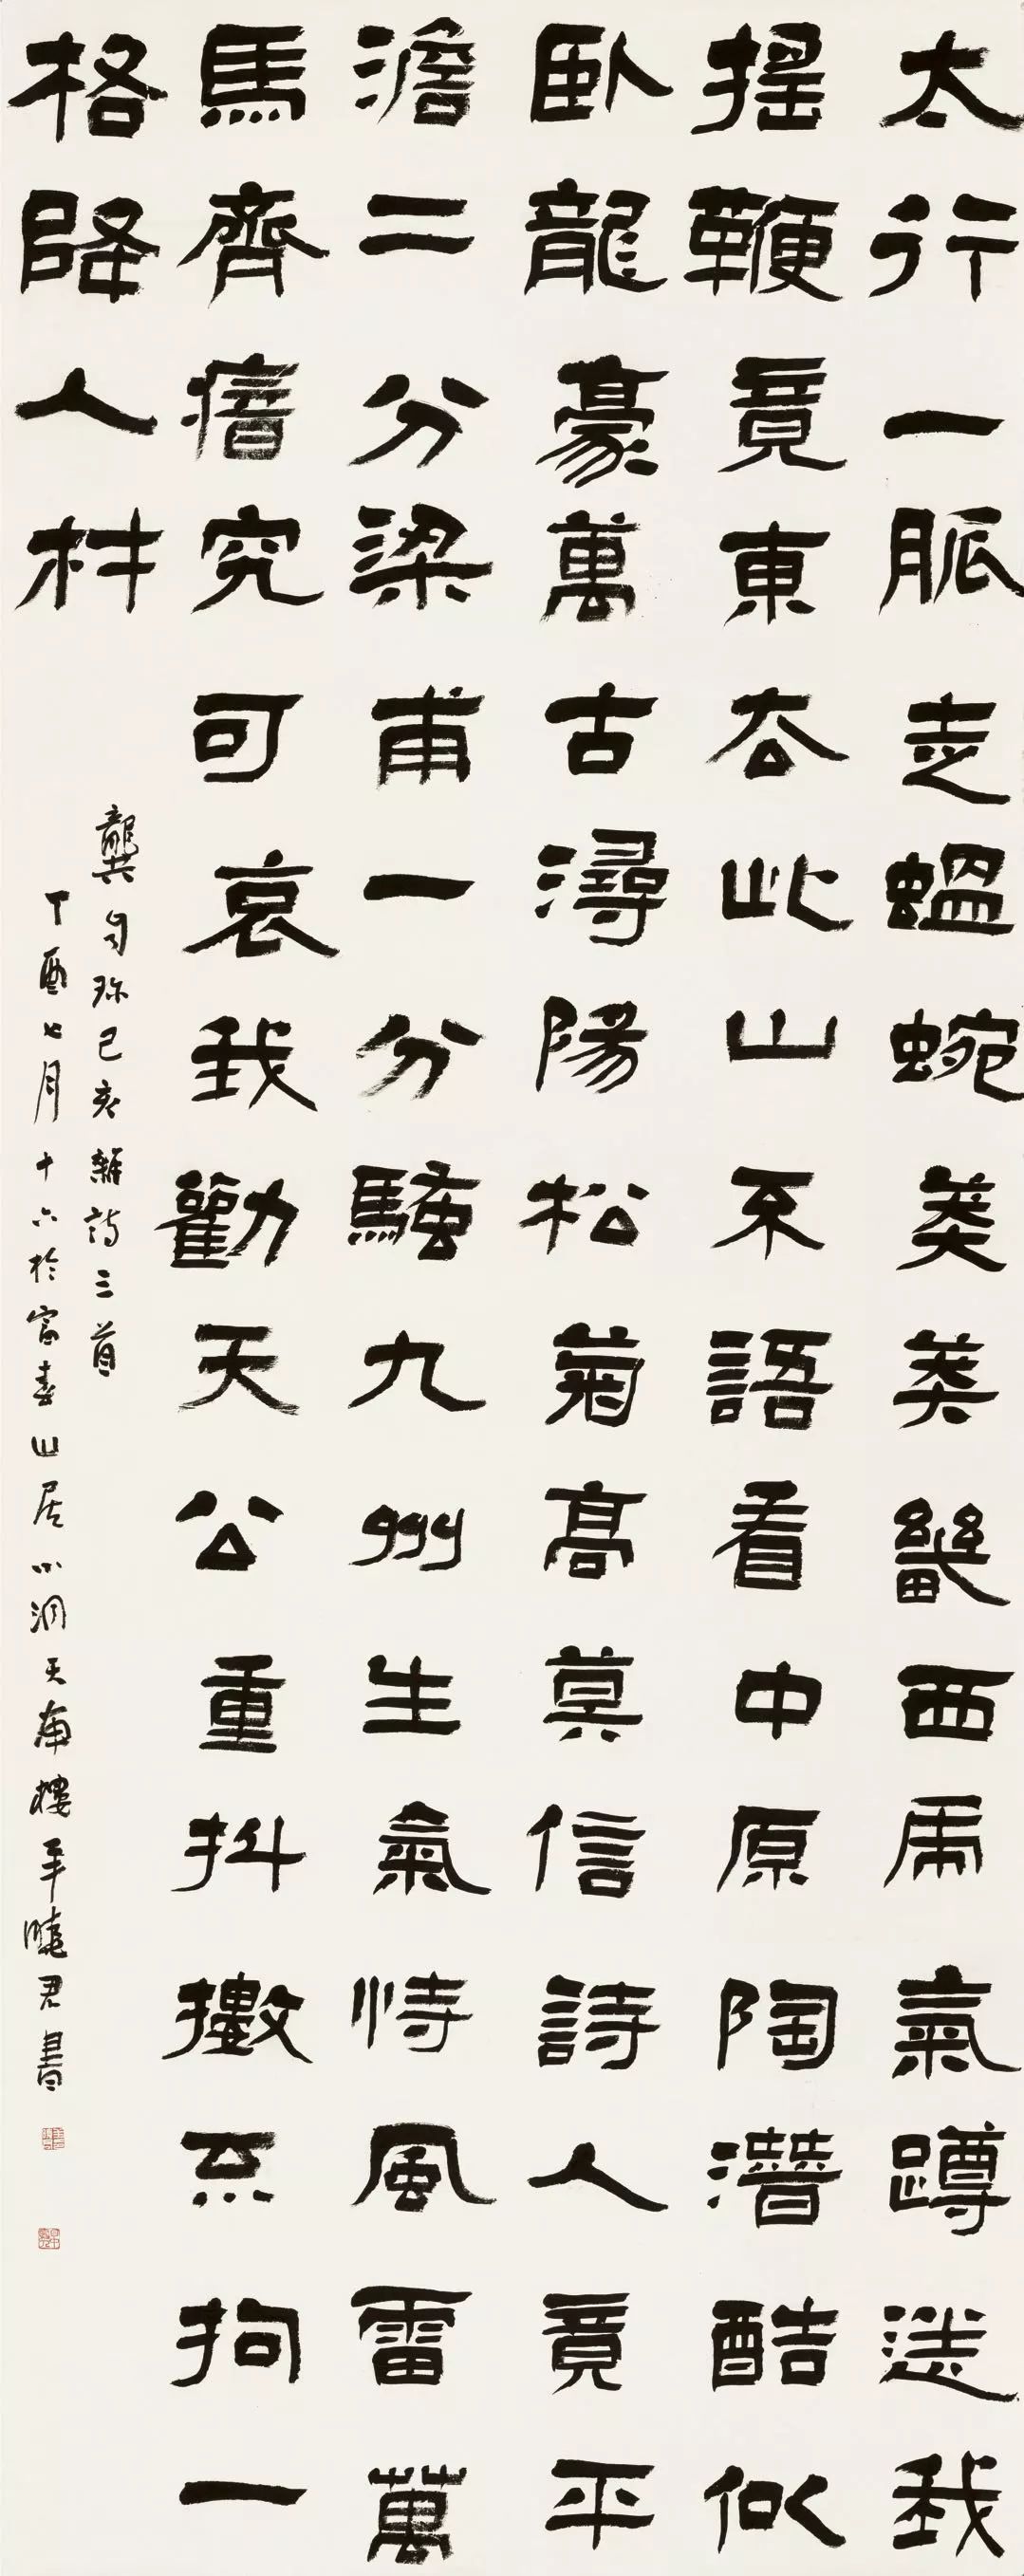 太行一脈走蝹蜿莽莽畿西虎氣蹲送我
搖鞭竟東去此山不語看中原陶潛酷似
臥龍豪萬古潯陽松菊高莫信詩人竟平
澹二分梁甫一分騷九州生氣恃風雷萬
馬齊瘖究可哀我勸天公重抖擻不拘一
格降人材
龔自珍己亥雜詩三首
丁酉七月十六於富春山居小洞天南樓羊曉君書